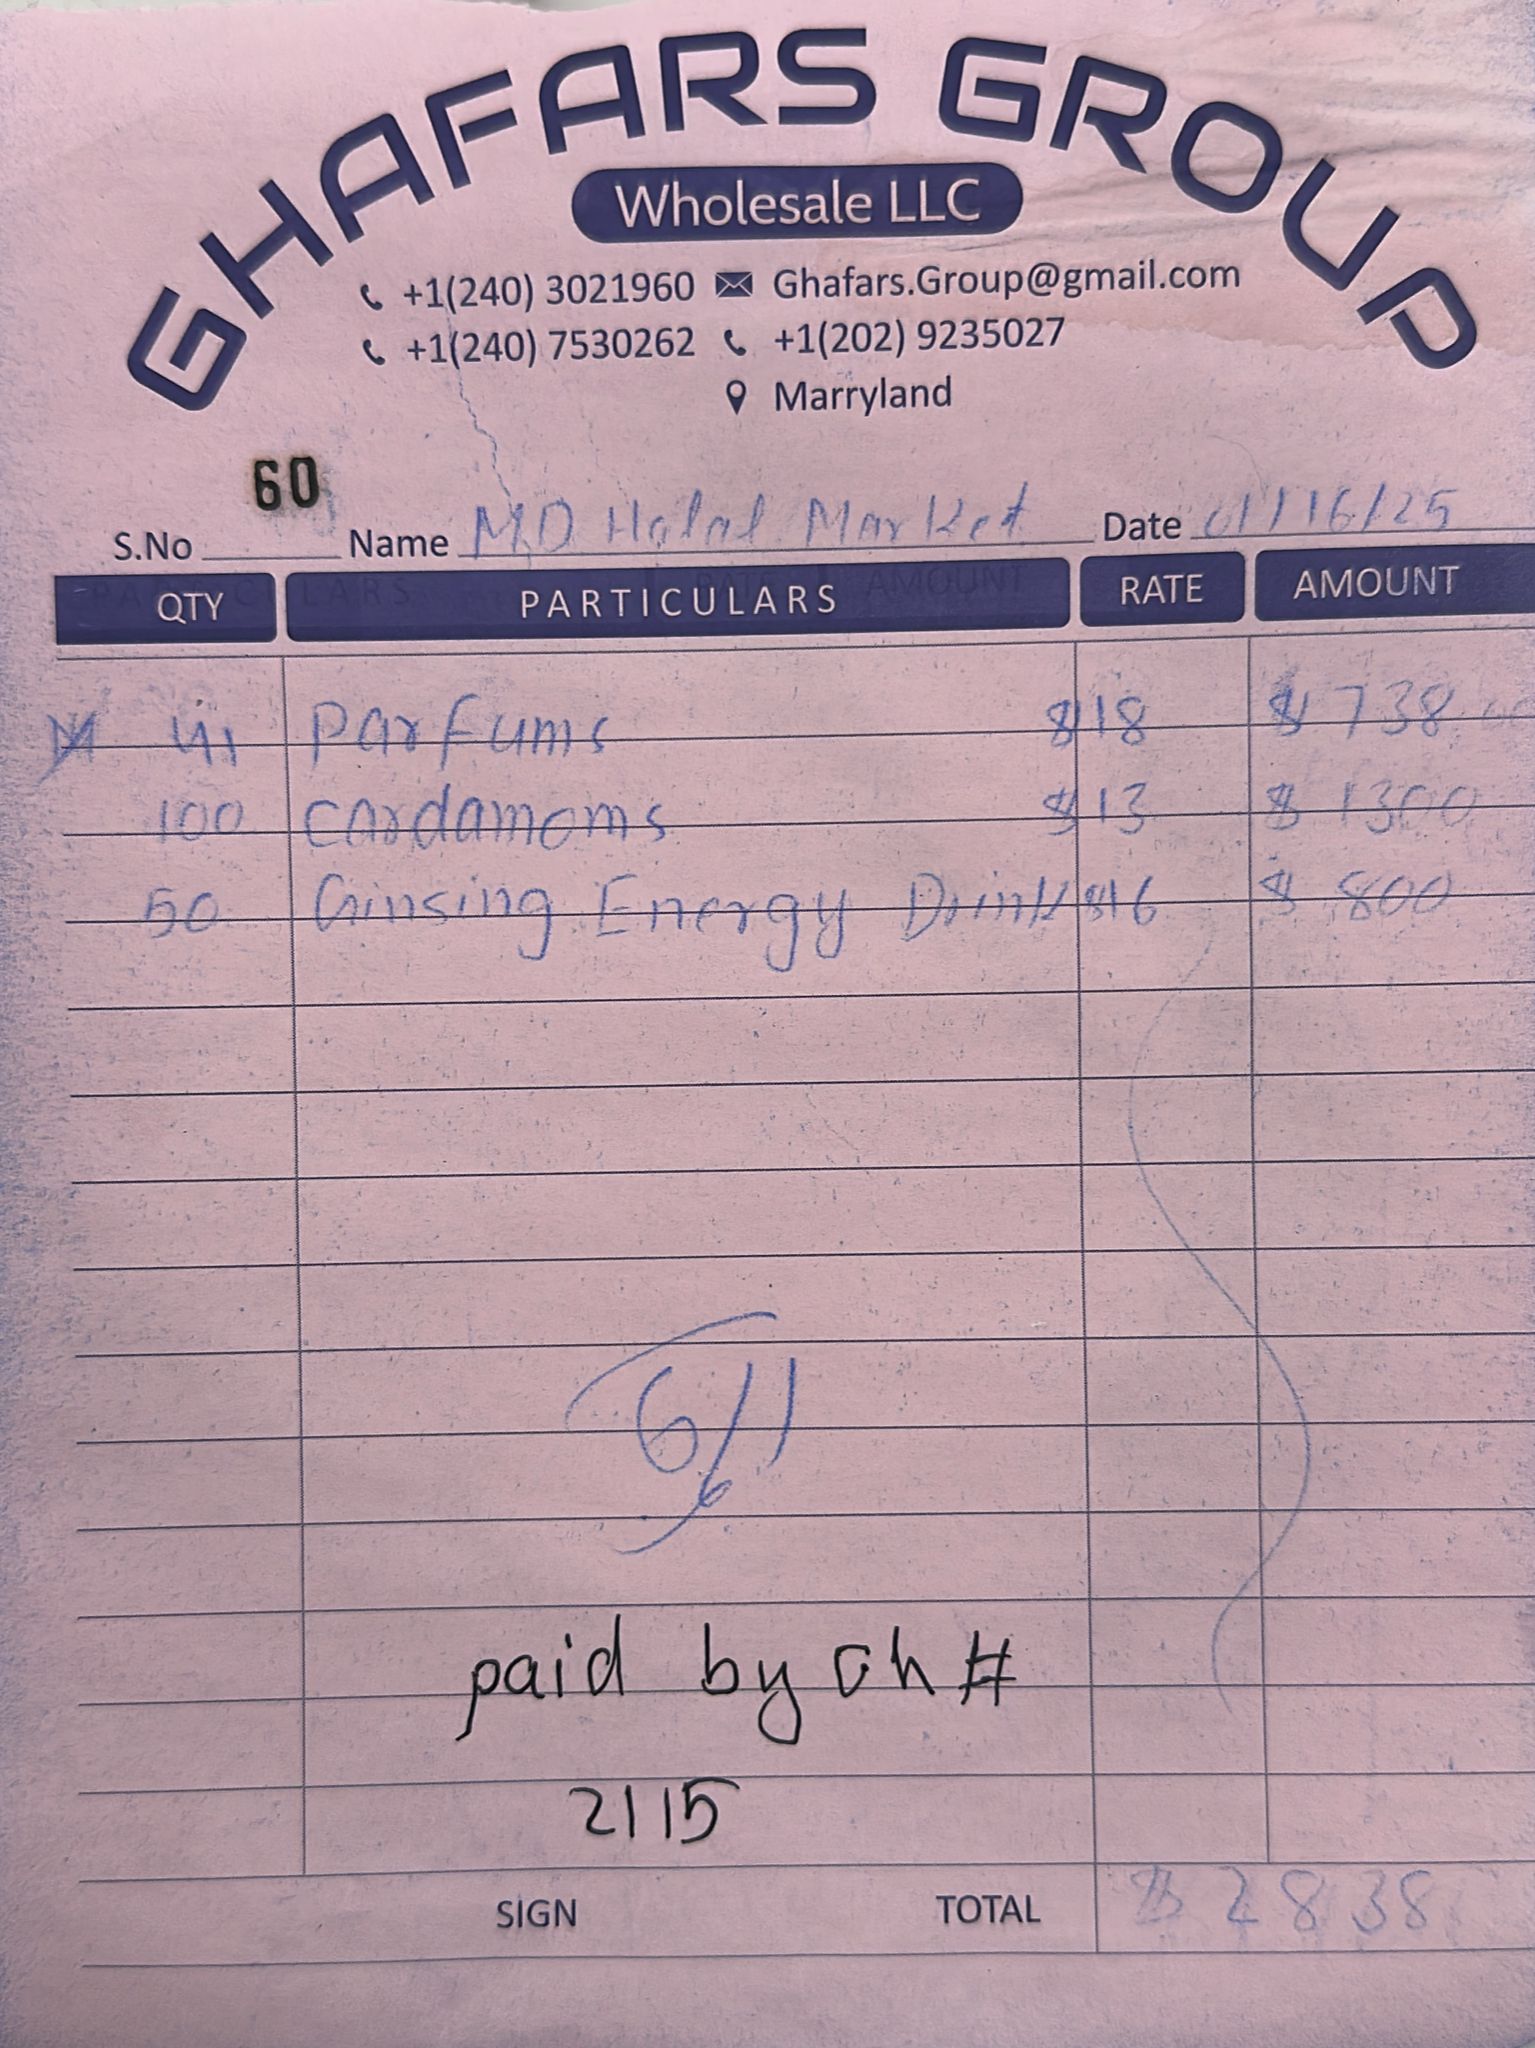 GHAFARS GROUP
Wholesale LLC
+1(240) 3021960 Ghafars.Group@gmail.com
+1(240) 7530262 +1(202) 9235027
Marryland
60
S.No Name M.D Halal Market Date 01/16/25
QTY PARTICULARS RATE AMOUNT
41 Parfums $18 $738
100 Cardamoms $13 $1300
50 Ginsing Energy Drink $16 $800
paid by ch #
2115
SIGN TOTAL $2838